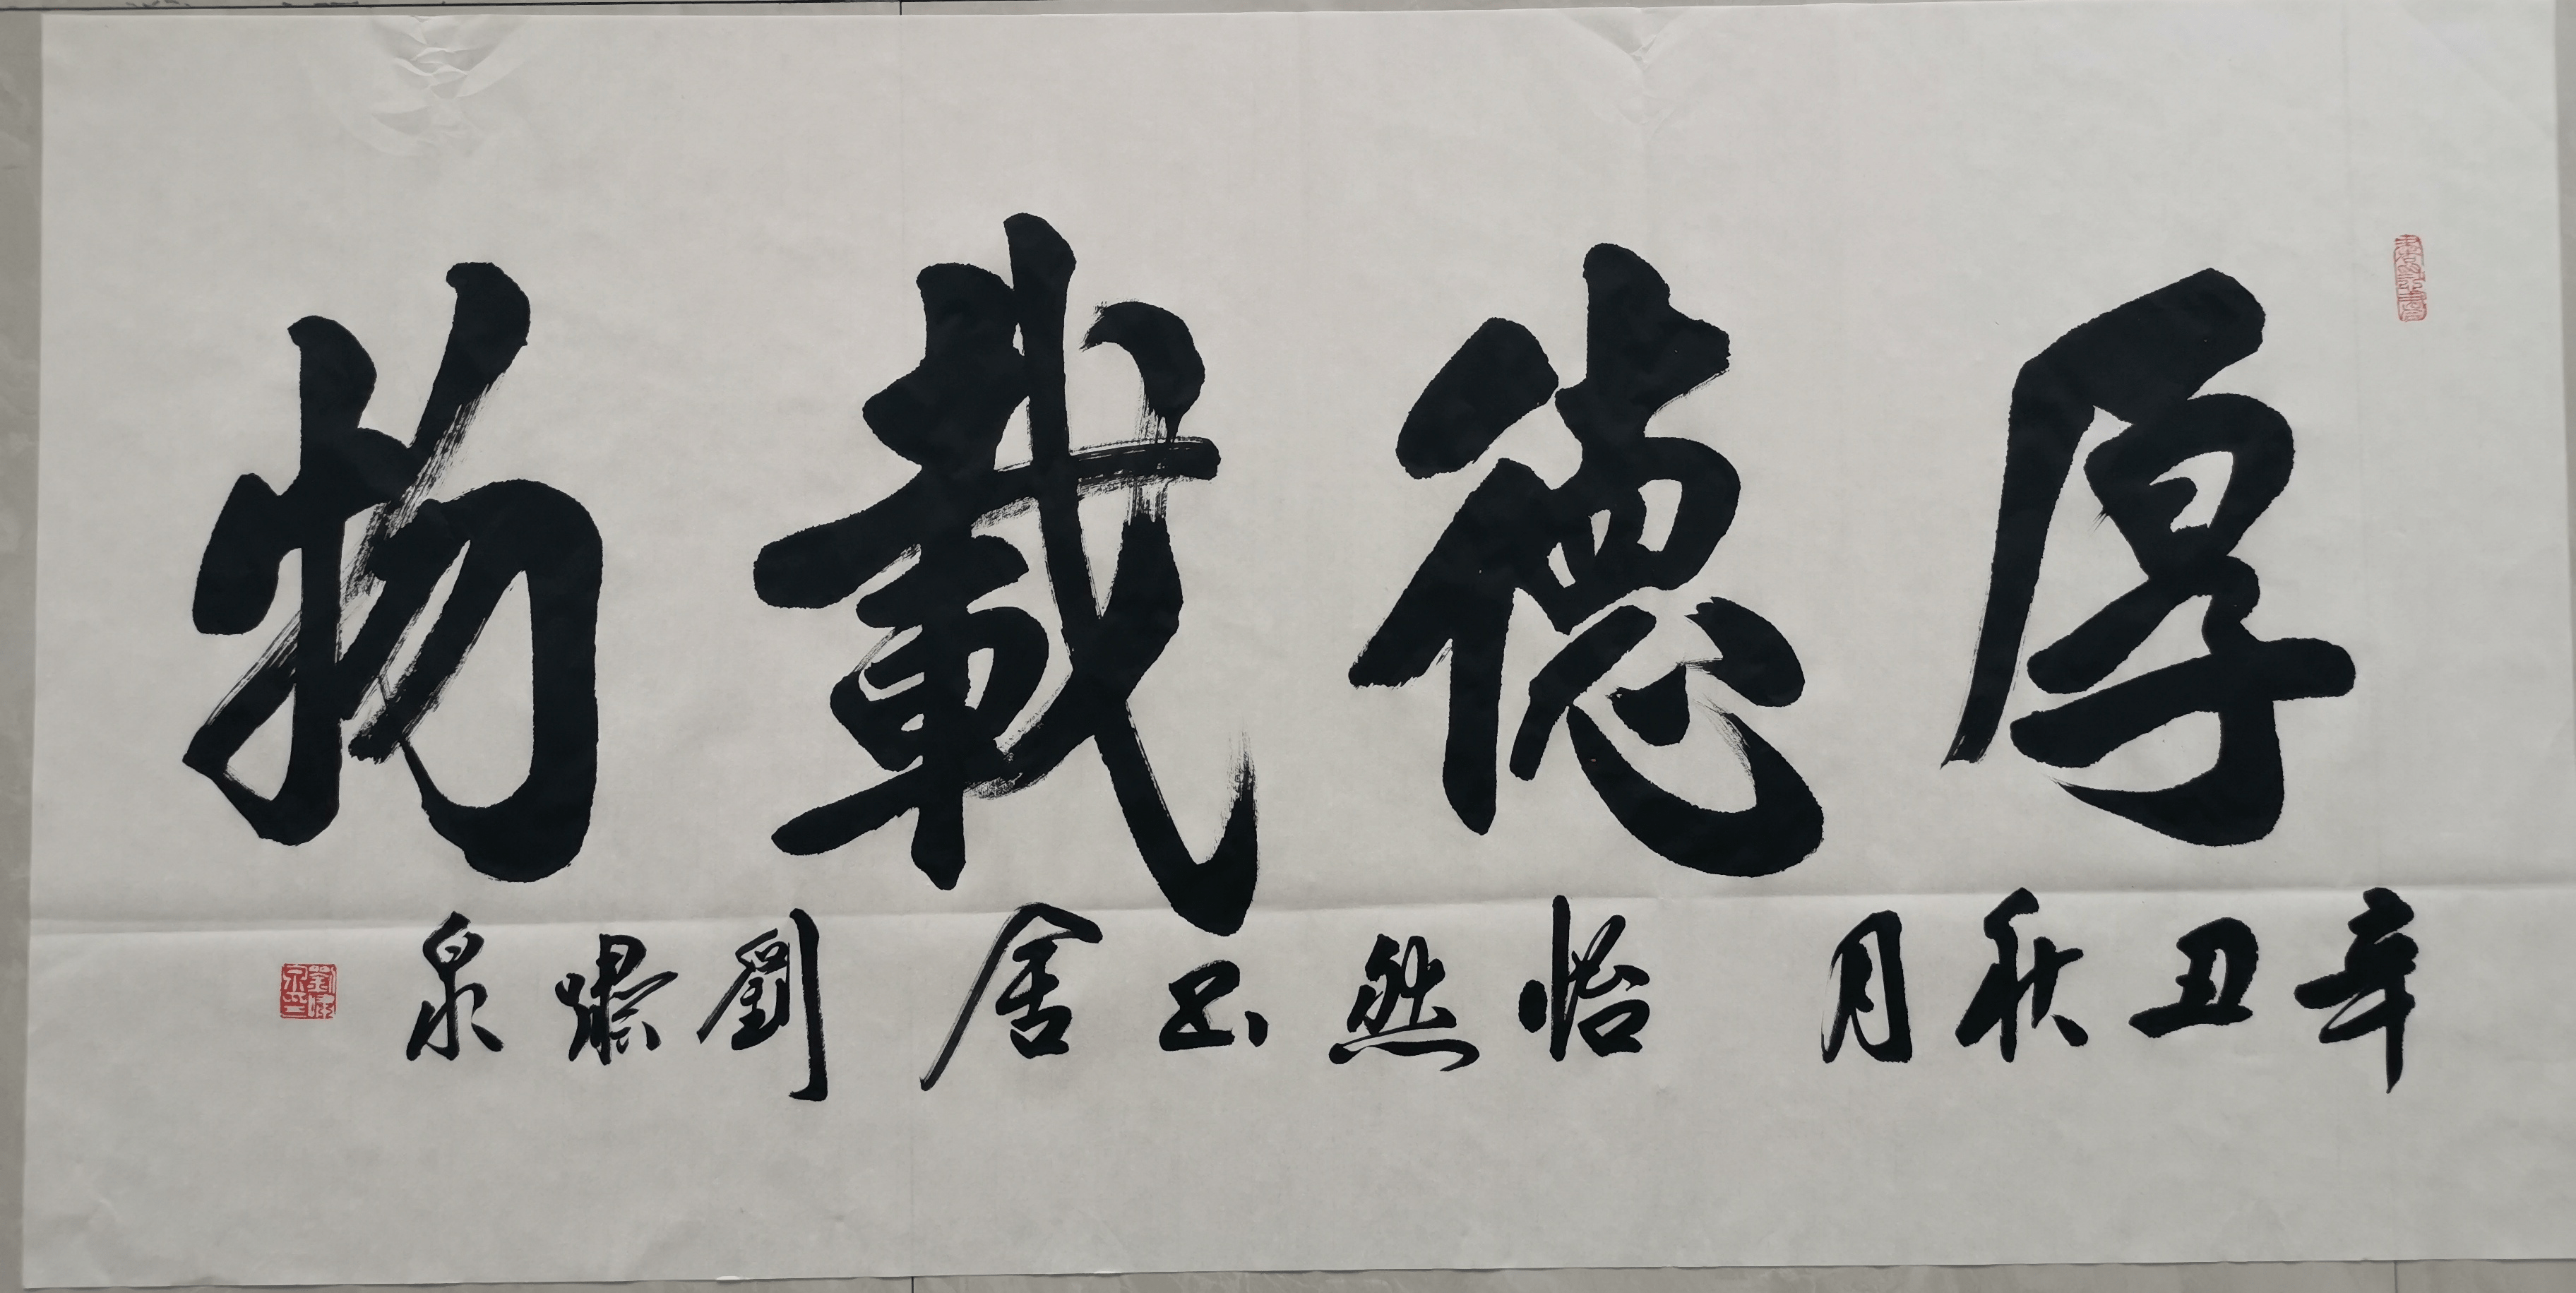 厚德載物
辛丑秋月 怡然书舍 劉 泉